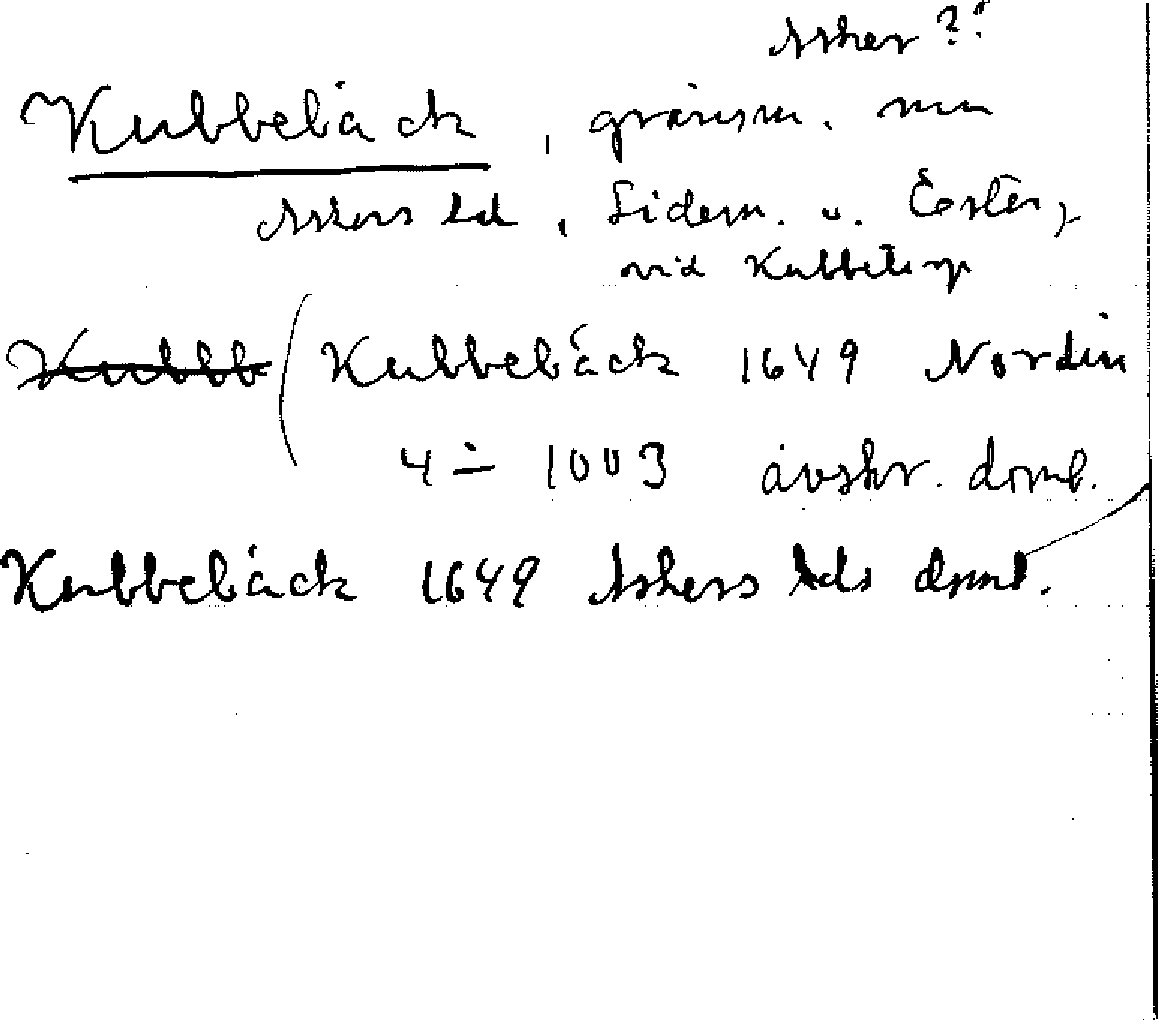 Asker ??
Kubbebäck, gränsm. m
Askers hd, Lidem. o. Öster,
vid Kubbetorp
Kubbb (Kubbebäck 1649 Nordin
4÷ 1003 avskr. domb.
Kubbebäck 1649 Askers hds domb.